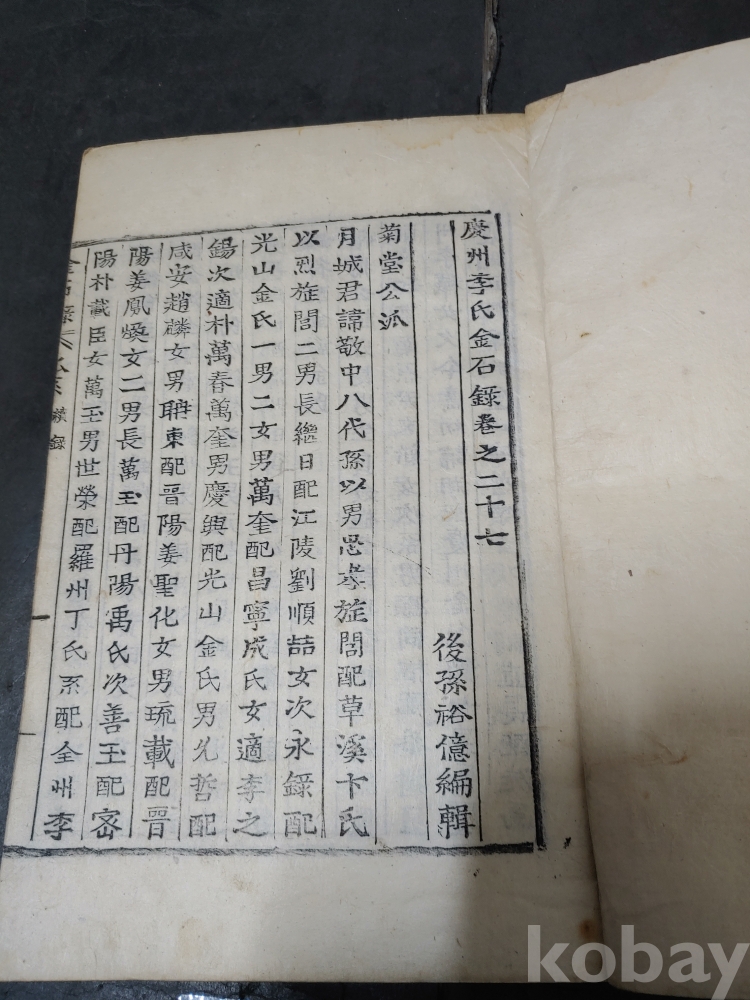 慶州李氏金石錄卷之二十七
後孫裕億編輯
菊堂公派
月城君諱敬中八代孫以男思孝旌閭配草溪卞氏
以烈旌閭二男長繼日配江陵劉順喆女次永錄配
光山金氏一男二女男萬奎配昌寧成氏女適李之
錫次適朴萬春萬奎男慶興配光山金氏男允哲配
咸安趙麟女男耼東配晋陽姜聖化女男琉載配晋
陽姜鳳煥女二男長萬玉配丹陽禹氏次善玉配密
陽朴載臣女萬玉男世榮配羅州丁氏系配全州李
kobay